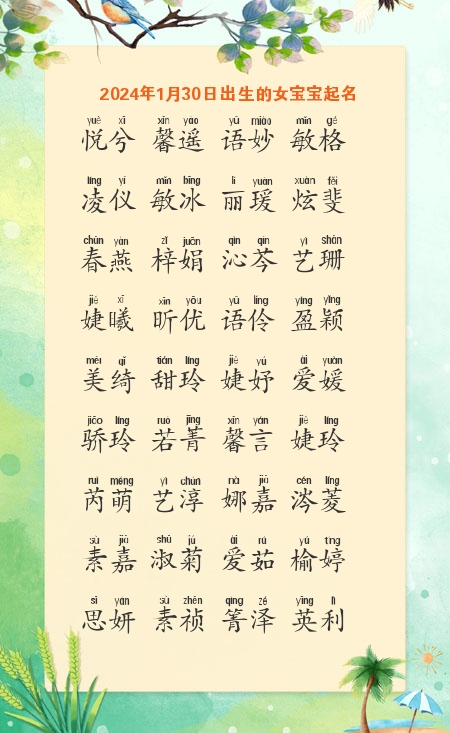 2024年1月30日出生的女宝宝起名
yuè xī xīn yáo yǔ miào mǐn gé
悦兮 馨遥 语妙 敏格
líng yí mǐn bīng lì yuàn xuàn fěi
凌仪 敏冰 丽瑗 炫斐
chūn yàn zǐ juān qìn qín yì shān
春燕 梓娟 沁芩 艺珊
jié xī xīn yōu yǔ líng yíng yǐng
婕曦 昕优 语伶 盈颖
měi qǐ tián líng jié yú ài yuàn
美绮 甜玲 婕妤 爱媛
jiāo líng ruò jīng xīn yán jié líng
骄玲 若菁 馨言 婕玲
ruì méng yì chún nà jiā cén líng
芮萌 艺淳 娜嘉 涔菱
sù jiā shū jú ài rú yú tíng
素嘉 淑菊 爱茹 榆婷
sī yán sù zhēn qìng zé yīng lì
思妍 素祯 箐泽 英利